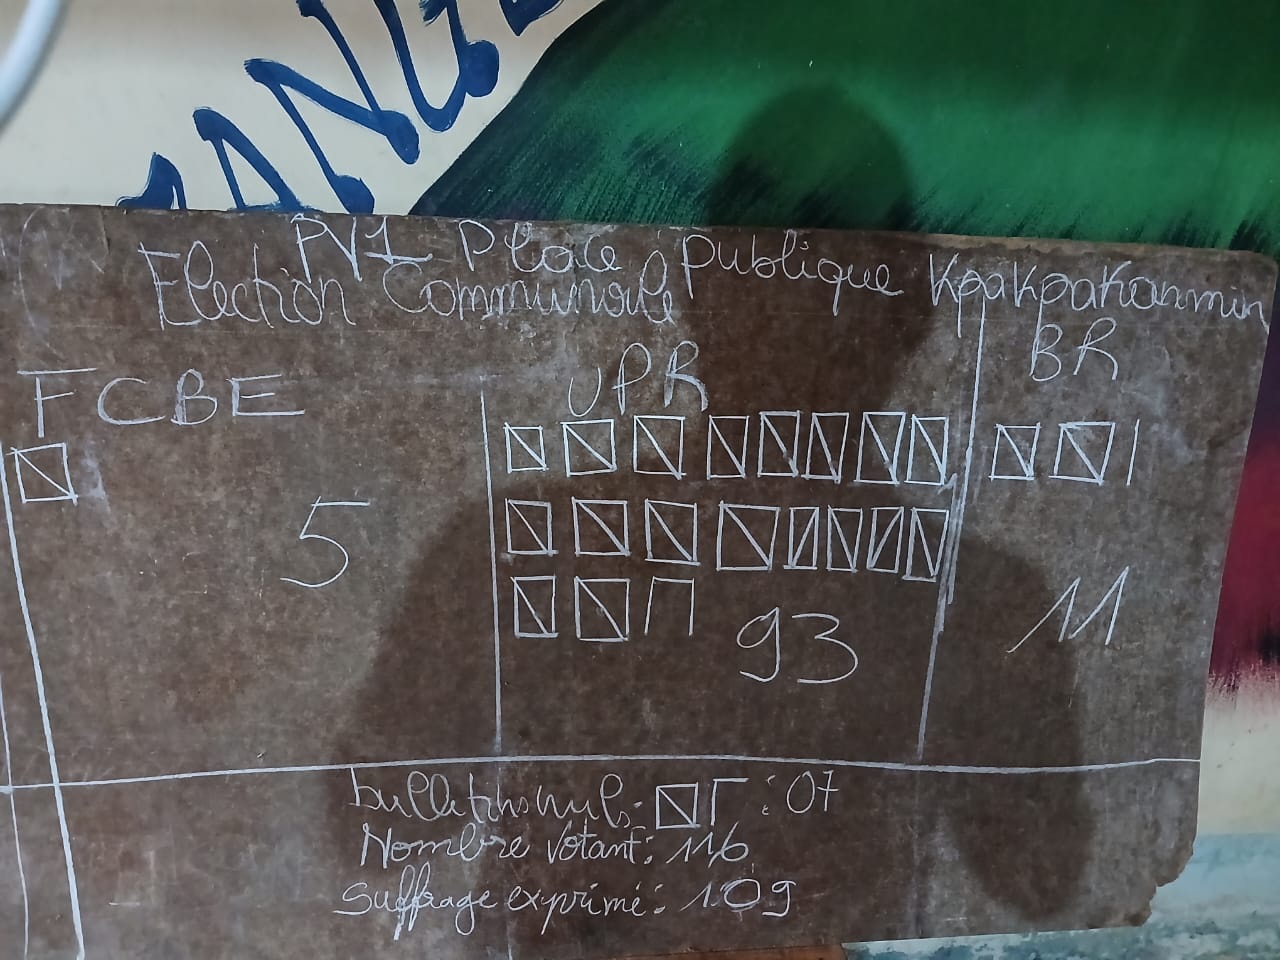 PV1 Place publique Kpakpakanmin
Election Communale
FCBE
UPR
BR
5
93
11
bulletins nuls: : 07
Nombre votant: 116
suffrage exprimé: 109